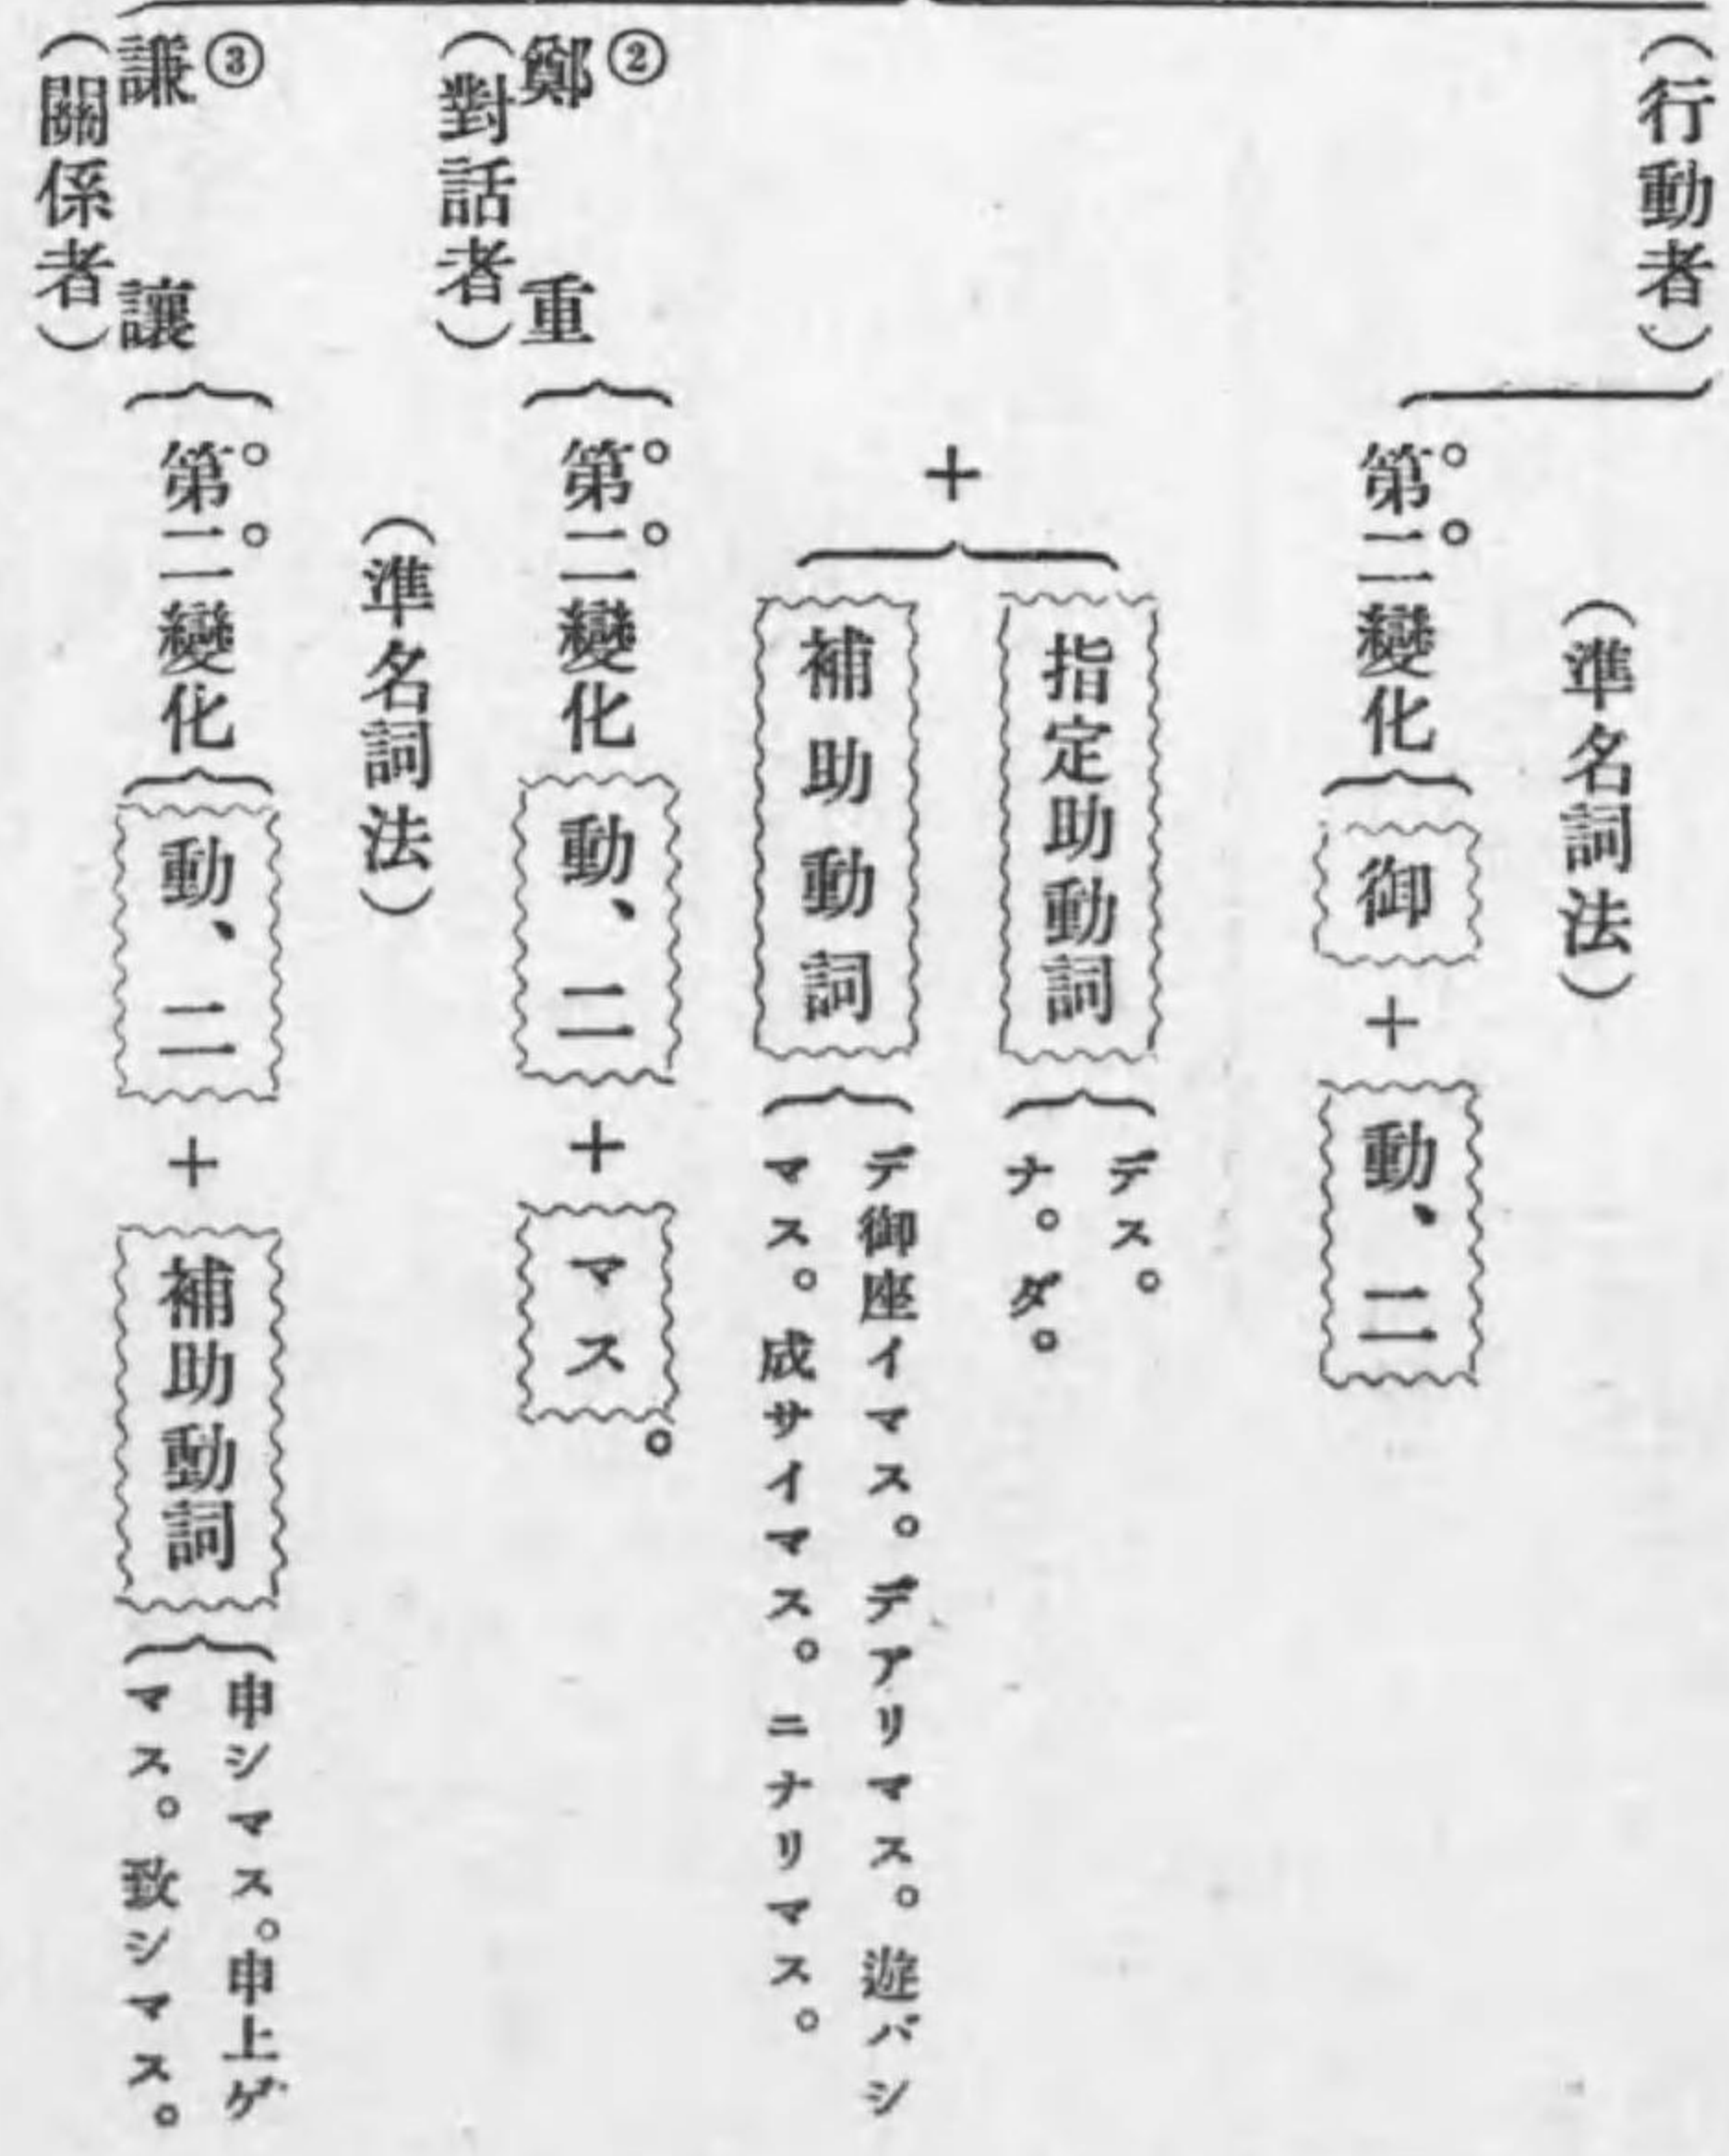 (行動者)
(準名詞法)
第二變化
御
+
動、二
+
指定助動詞
デス。
ナ。ダ。
補助動詞
デ御座イマス。デアリマス。遊バシ
マス。成サイマス。ニナリマス。
②
鄭重
(對話者)
第二變化
動、二
+
マス
。
(準名詞法)
③
謙讓
(關係者)
第二變化
動、二
+
補助動詞
申シマス。申上ゲ
マス。致シマス。